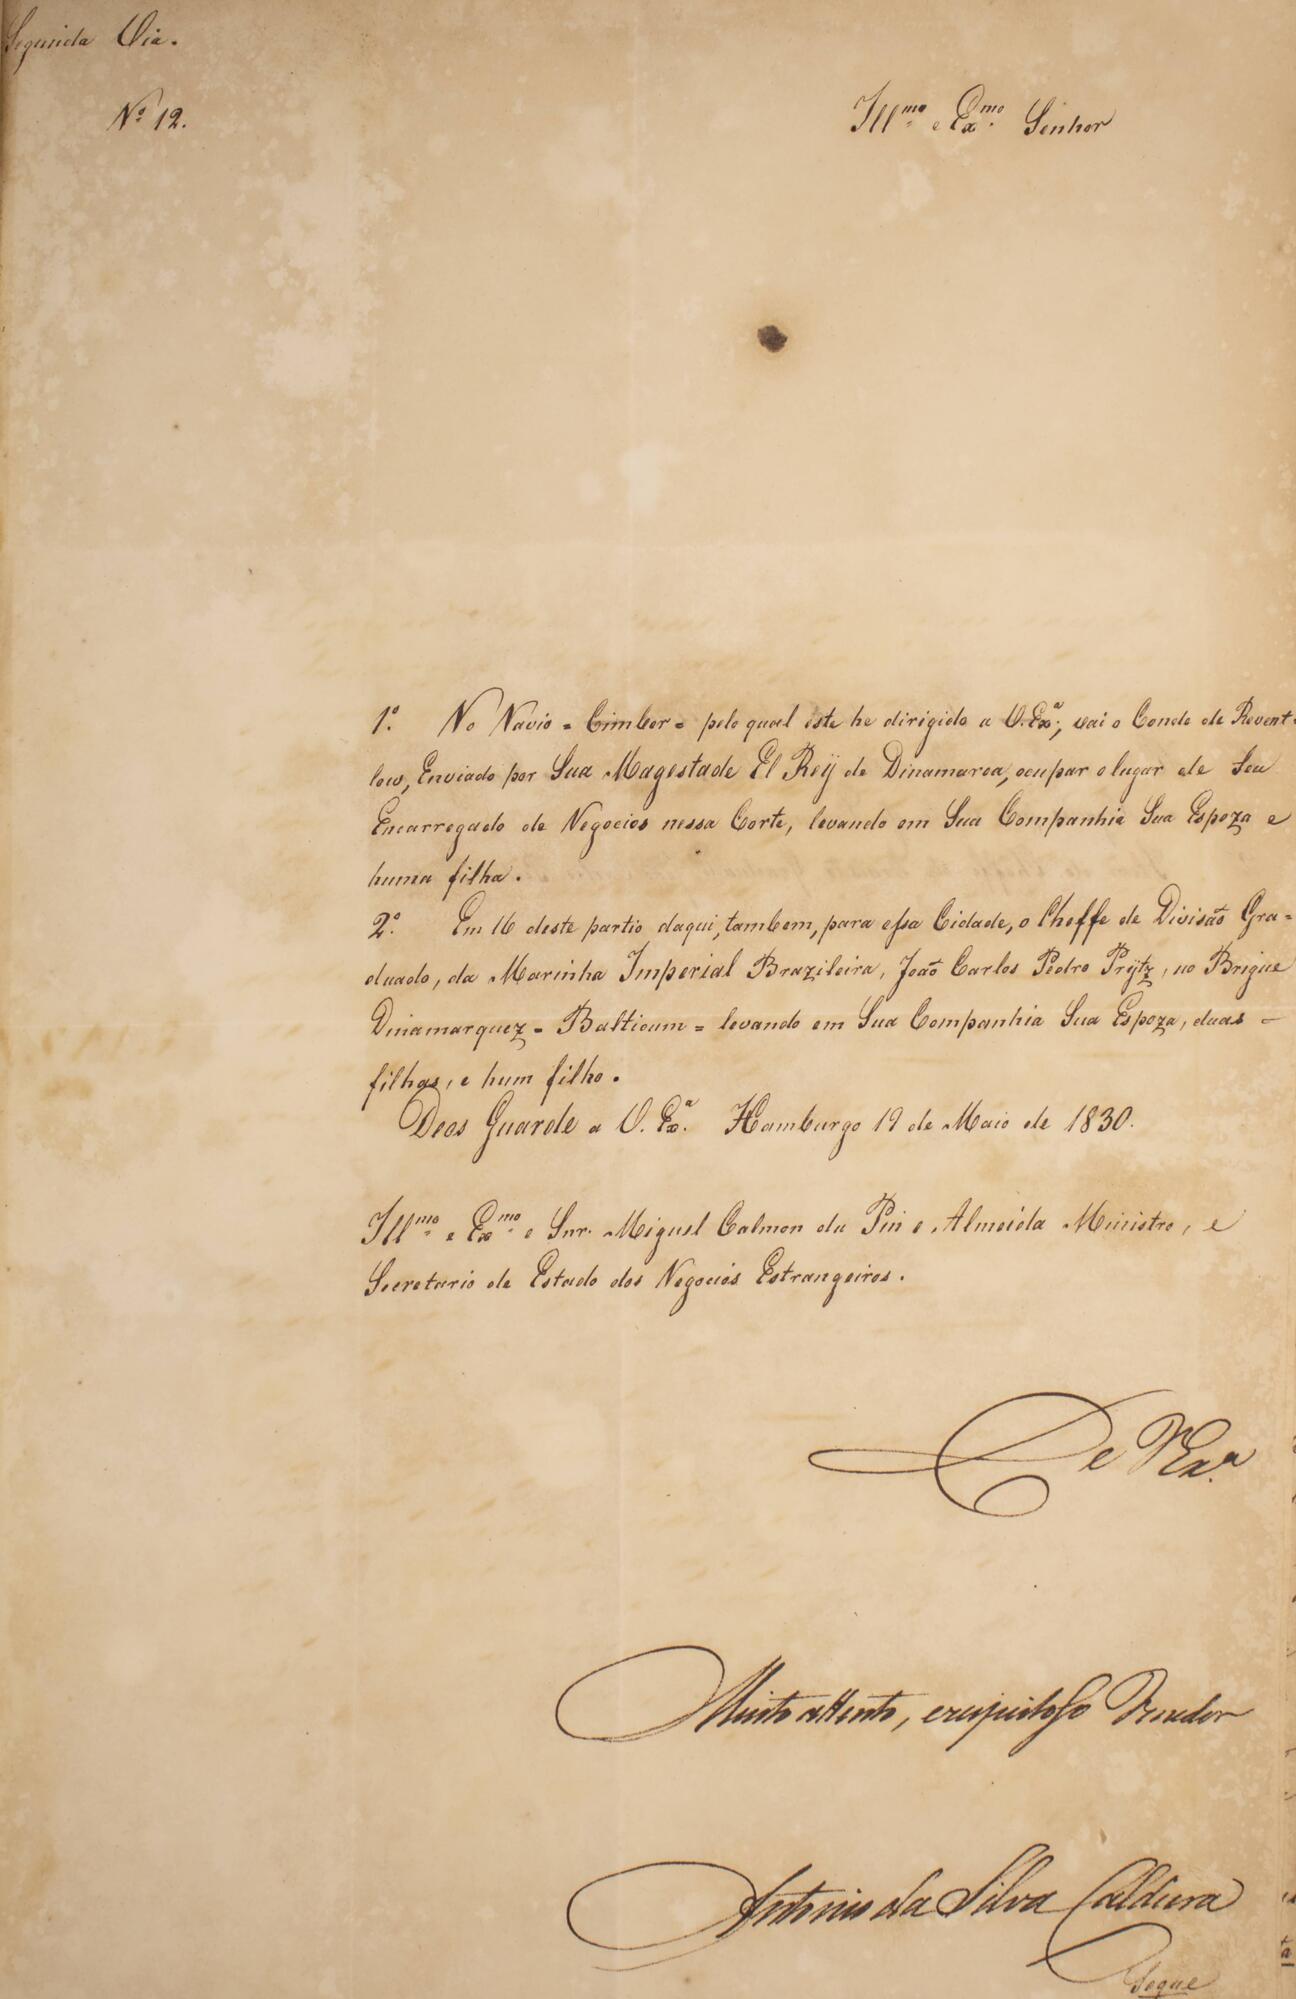 Segunda Via.
Nº 12.
Illmo e Exmo Senhor
1º. No Navio = Cimber = pelo qual éste he dirigido a V. Exª, vai o Conde de Revent-
low, Enviado por Sua Magestade El Reÿ de Dinamarca, ocupar o lugar de Seu
Encarregado de Negocios nessa Corte, levando em Sua Companhia Sua Espoza e
huma filha.
2º. Em 16 deste partio daqui, tambem, para essa Cidade, o Cheffe de Divisão Gra-
duado, da Marinha Imperial Brazileira, João Carlos Pedro Prÿtz, no Brigue
Dinamarquez = Balticum = levando em Sua Companhia Sua Espoza, duas
filhas, e hum filho.
Deos Guarde a V. Exª. Hamburgo 19 de Maio de 1830.
Illmo e Exmo Snr. Miguel Calmon du Pin e Almeida Ministro, e
Secretario de Estado dos Negocios Estrangeiros.
De V Exª.
Muito attento, e respeitoso Venedor
Antonio da Silva Caldeira
Segue